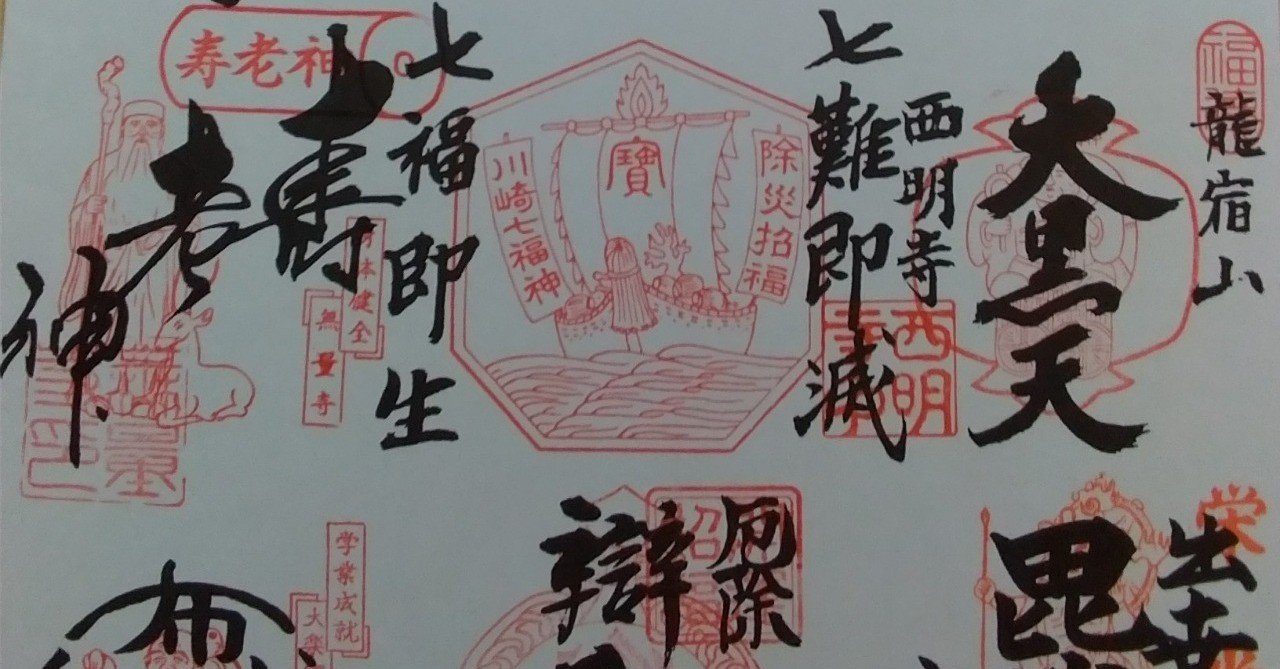 福
龍宿山
大黒天
西明寺
西明寺
七難即滅
除災招福
寶
川崎七福神
七福即生
寿老神
壽
老
神
健全
無量寺
栄
出世
毘
厄除
辯
学業成就
大楽
布